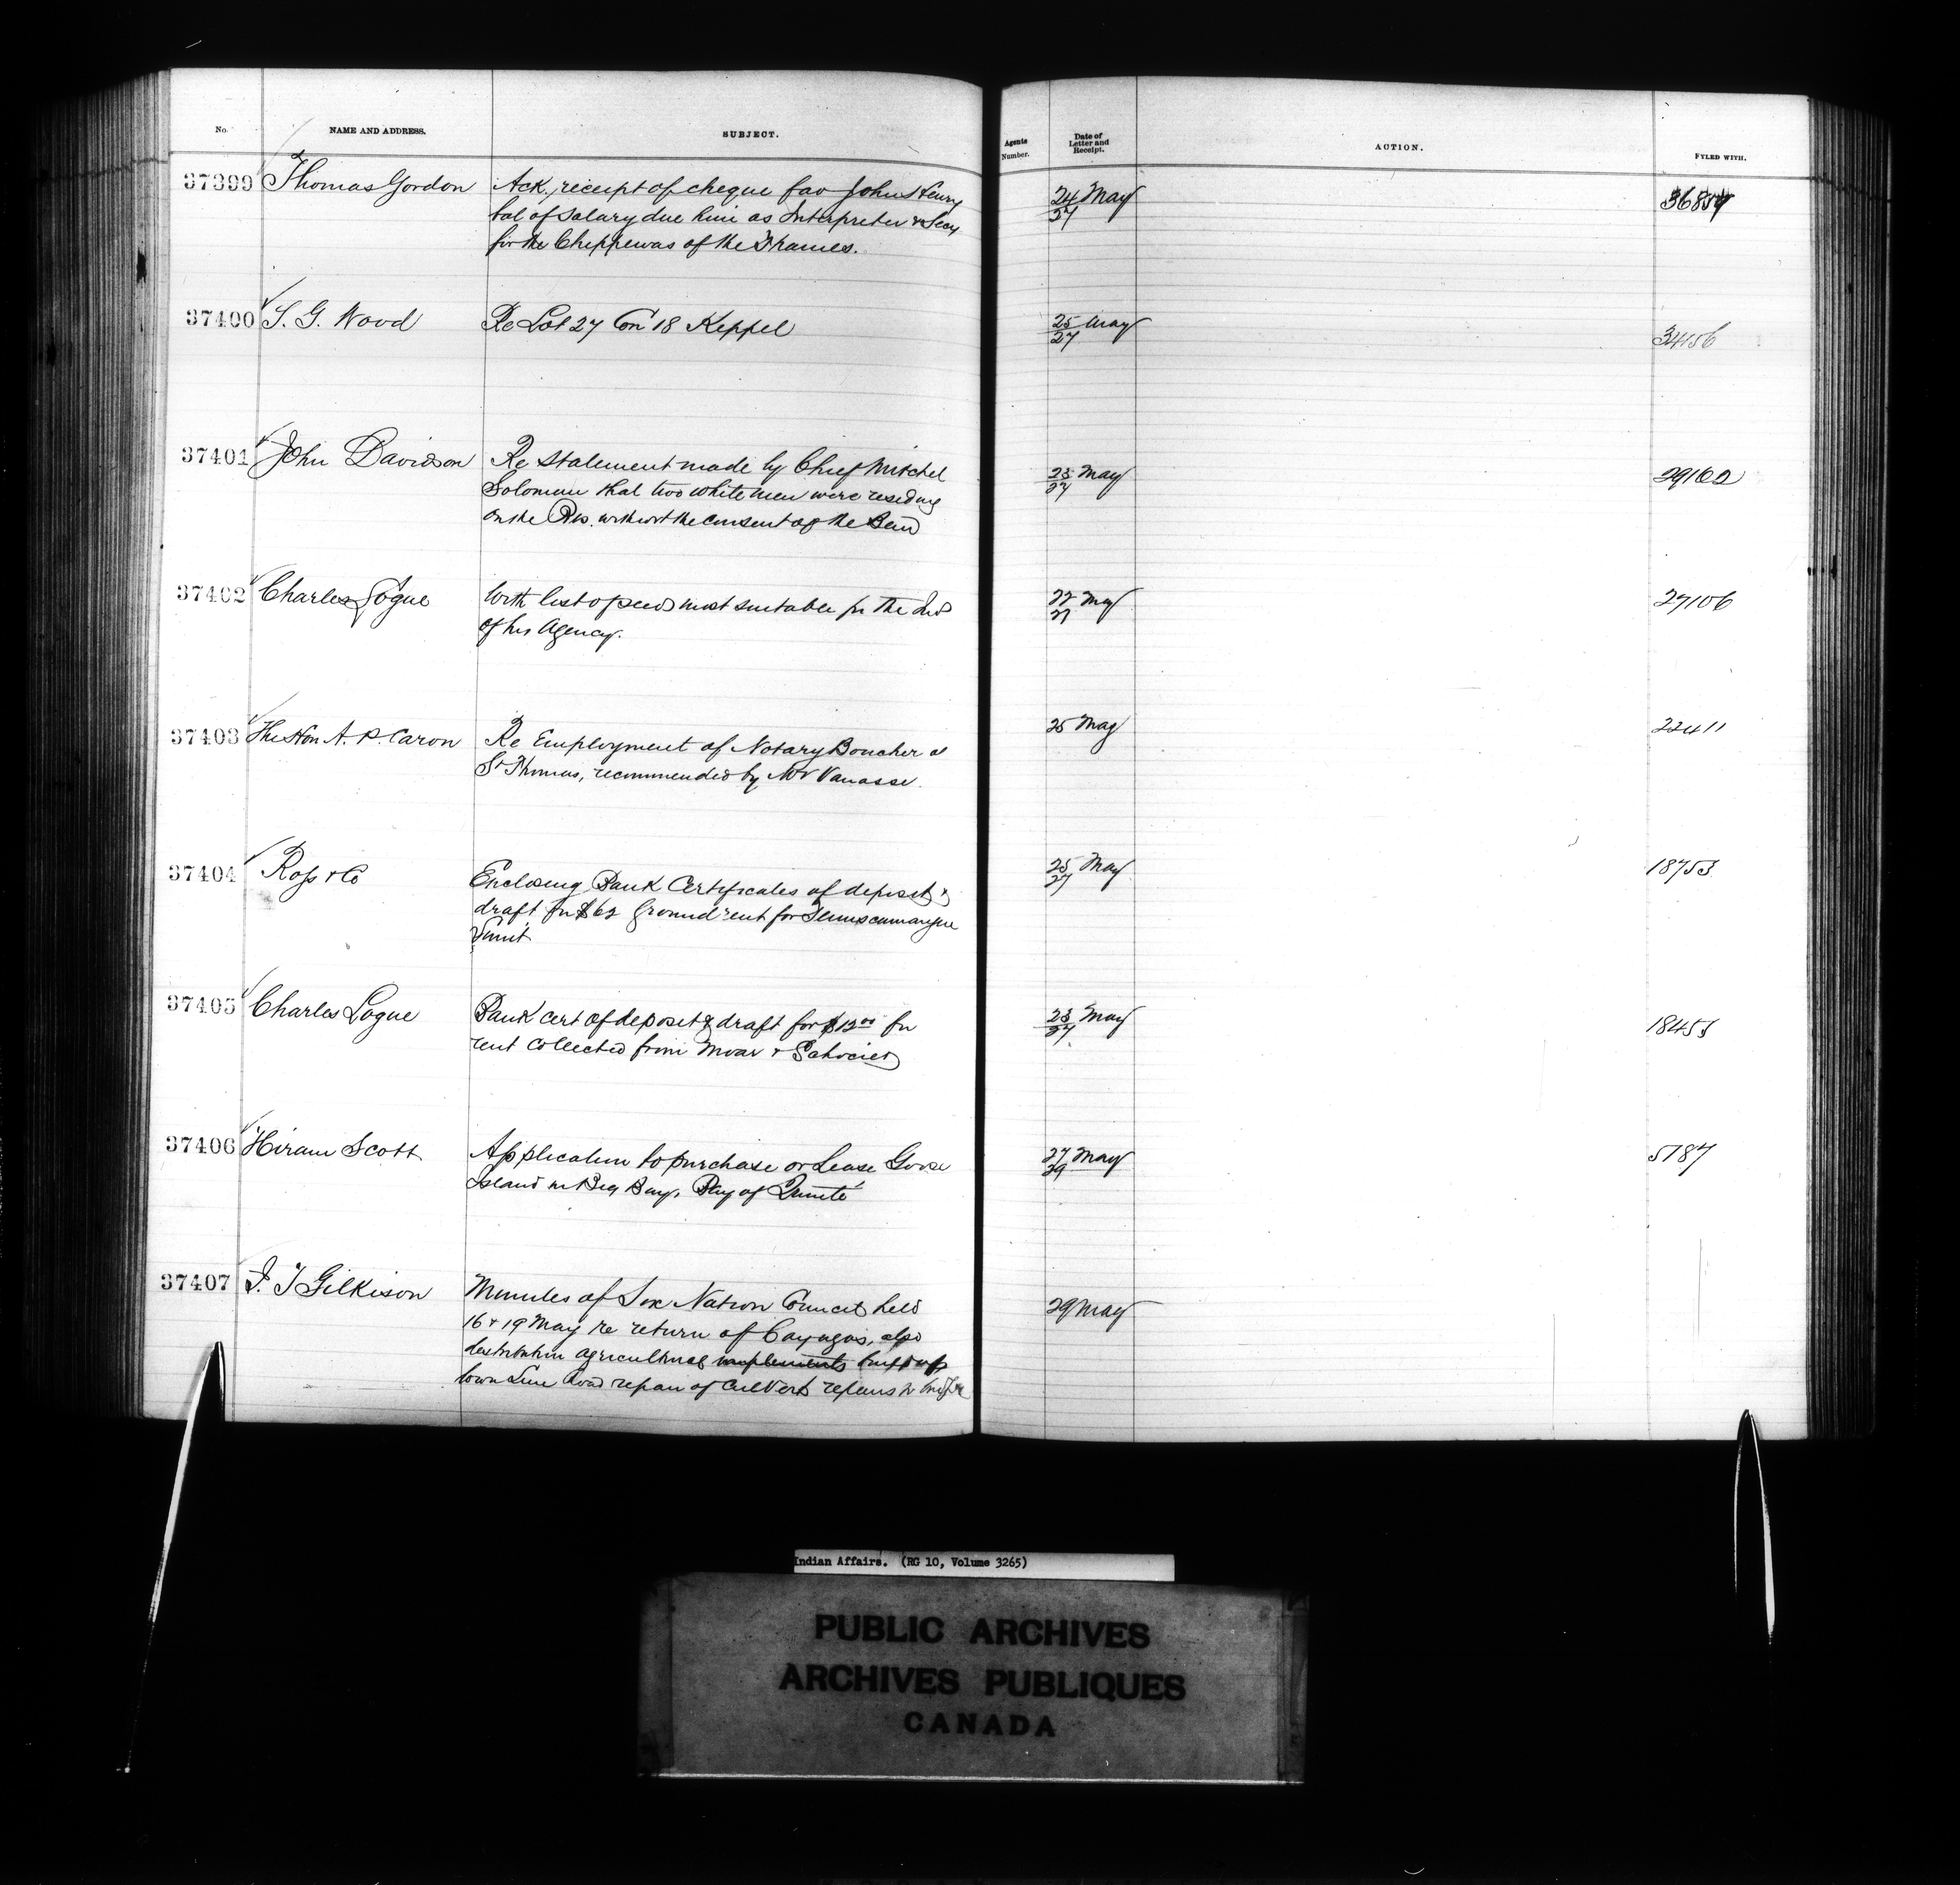 No. NAME AND ADDRESS. SUBJECT. Agents Number. Date of Letter and Receipt. ACTION. FYLED WITH.
37399 Thomas Gordon Ack. receipt of cheque fav John Henry 24/27 May
bal of salary due him as Interpreter & Secy
for the Chippewas of the Thames.
37400 S. G. Wood Re Lot 27 Con 18 Keppel 25/27 May 34156
37401 John Davidson Re statement made by Chief Mitchel 23/27 May 29162
Solomon that two white men were residing
on the Res. without the consent of the Band
37402 Charles Logue With list of seeds most suitable for the Inds 22/27 May 27106
of his Agency.
37403 The Hon A. P. Caron Re Employment of Notary Boucher of 25 May 22411
St Thomas, recommended by Mr Vanasse.
37404 Ross & Co Enclosing Bank Certificates of deposit & 25/27 May 18753
draft for $62 Ground rent for Temiscamangue
37405 Charles Logue Bank cert of deposit & draft for $12 00 for 23/27 May 18453
rent collected from Moar &
37406 Hiram Scott Application to purchase or Lease Goose 27/29 May 5787
Island in Big Bay, Bay of Quinté
37407 J. T Gilkison Minutes of Six Nation Council held 29 May
16 & 19 May re return of Cayugas, also
distribution agricultural implements
town Line Road repair of Culvert repairs to
Indian Affairs. (RG 10, Volume 3265)
PUBLIC ARCHIVES
ARCHIVES PUBLIQUES
CANADA